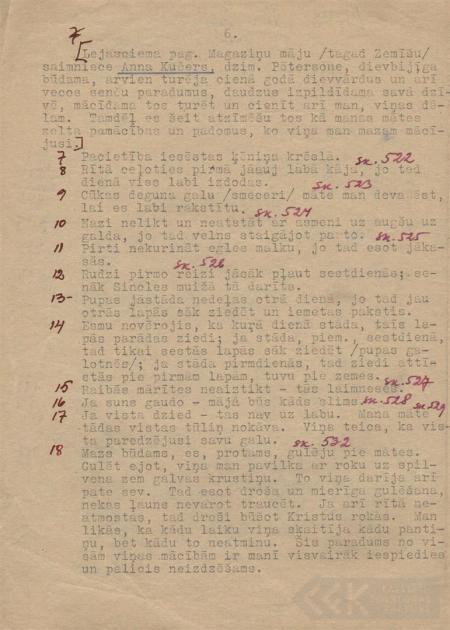 7 6.
[Lejasciema pag. Magaziņu māju /tagad Zemīšu/
saimniece Anna Kučers, dzim. Pētersone, dievbijīga
būdama, arvien turēja cienā godā dievvārdus un arī
vecos senču paradumus, daudzus izpildīdama savā dzī-
vē, mācīdama tos turēt un cienīt arī man, viņas dē-
lam. Tamdēļ es šeit atzīmēšu tos kā manas mātes
zelta pamācības un padomus, ko viņa man mazam mācī-
jusi.]
7 Pacietība iesēstas ķēniņa krēslā. sk. 522
8 Rītā ceļoties pirmā jāauj labā kāja, jo tad
dienā viss labi izdodas. sk. 523
9 Cūkas deguna galu /šņeceri/ māte man deva ēst,
lai es labi rakstītu. sk. 524
10 Nazi nelikt un neatstāt ar asmeni uz augšu uz
galda, jo tad velns staigājot pa to. sk. 525
11 Pirti nekurināt egles malku, jo tad esot jākā-
sās. sk. 526
12 Rudzi pirmo reizi jāsāk pļaut sestdienās; se-
nāk Sinoles muižā tā darīts.
13- Pupas jāstāda nedēļas otrā dienā, jo tad jau
otrās lapās sāk ziedēt un iemetas pākstis.
14 Esmu novērojis, ka kurā dienā stāda, tais la-
pās parādas ziedi; ja stāda, piem., sestdienā,
tad tikai sestās lapās sāk ziedēt /pupas ga-
lotnēs/; ja stāda pirmdienās, tad ziedi attī-
stās pie pirmām lapām, tuvu pie zemes.
15 Raibās mārītes neaiztikt - tās laimneses. sk. 527
16 Ja suns gaudo - mājā būs kāds slims sk. 528
17 Ja vista dzied - tas nav uz labu. Mana māte sk. 529
tādas vistas tūliņ nokāva. Viņa teica, ka vis-
ta paredzējusi savu galu. sk. 532
18 Mazs būdams, es, protams, gulēju pie mātes.
Gulēt ejot, viņa man pavilka ar roku uz spil-
vena zem galvas krustiņu. To viņa darīja arī
pate sev. Tad esot droša un mierīga gulēšana,
nekas ļauns nevarot traucēt. Ja arī rītā ne-
atmostās, tad droši būšot Kristus rokās. Man
likās, ka kādu laiku viņa skaitīja kādu panti-
ņu, bet kādu to neatminu. Šis paradums no vi-
sām viņas mācībām ir manī visvairāk iespiedies
un palicis neizdzēšams.